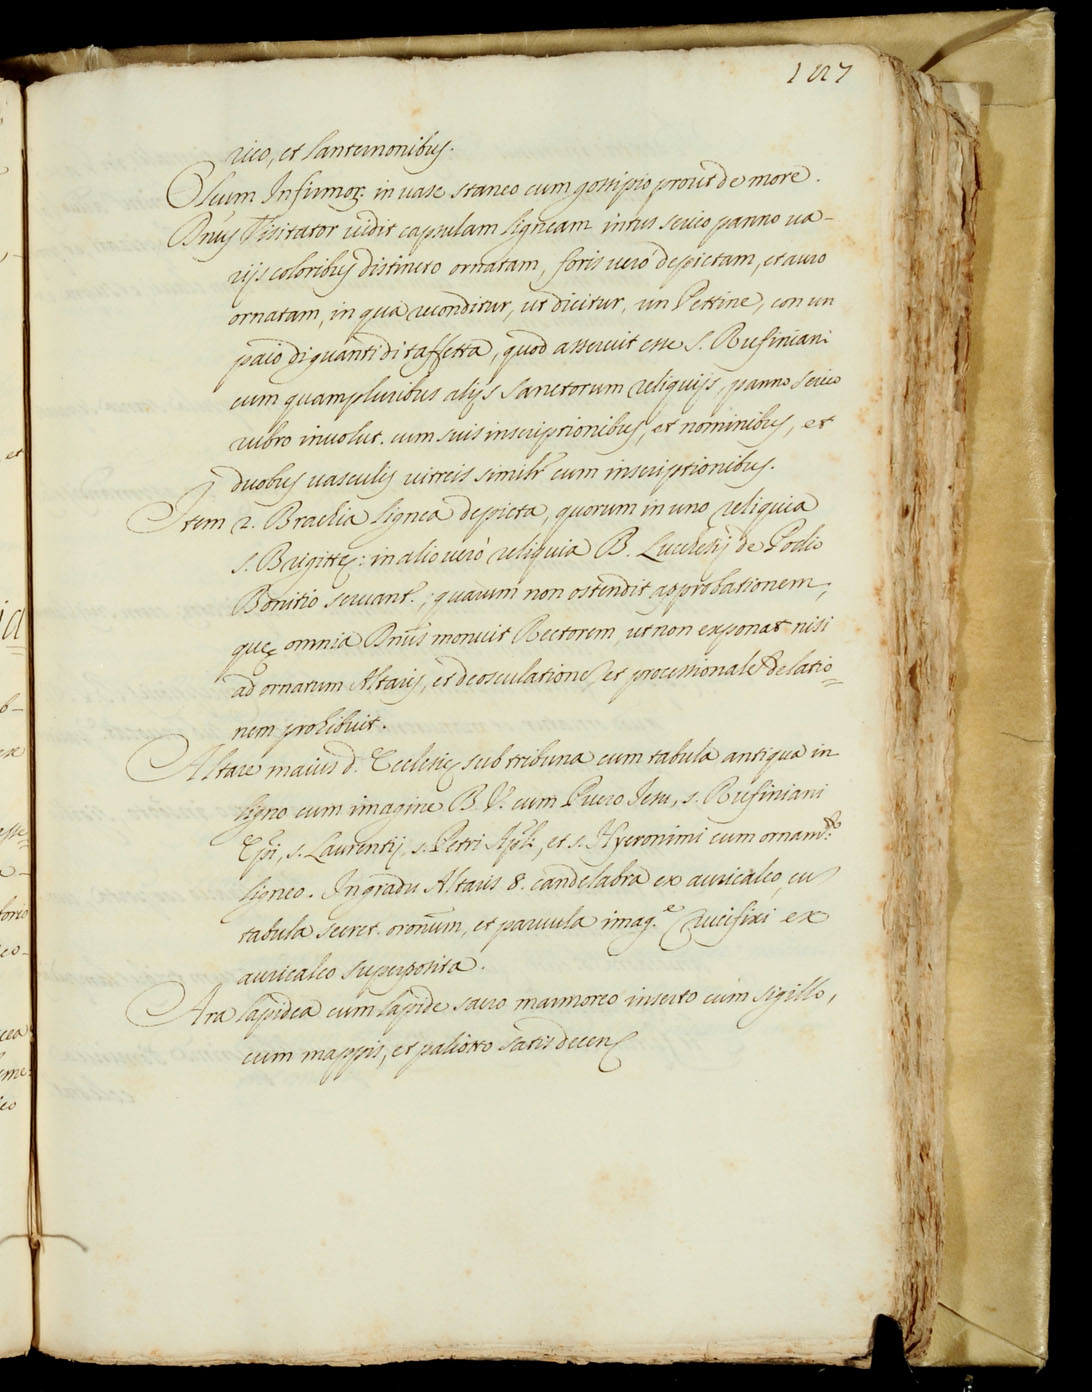 127
rico, et lanternonibus.
Oleum Infirmor: in uase staneo cum gossipio prout de more.
Dnus Visitator uidit capsulam ligneam intus serico panno ua-
rijs coloribus distincto ornatam, foris uerò depictam, et auro
ornatam, in qua reconditur, ut dicitur, un Pettine, con un
paio di guanti di taffetta, quod asseruit esse S. Rufiniani
cum quampluribus alijs Sanctorum reliquijs, panno serico
rubro inuolut. cum suis inscriptionibus, et nominibus, et
duobus uasculis uitreis similr cum inscriptionibus.
Item 2. Brachia lignea depicta, quorum in uno reliquia
s. Brigittę: in alio uerò reliquia B. Lucchesij de Podio
Bonitio seruant.; quarum non ostendit approbationem;
quę omnia Dnus monuit Rectorem, ut non exponat nisi
ad ornatum Altaris, et deosculatione, et processionale delatio=
nem prohibuit.
Altare maius d. Ecclesię sub tribuna cum tabula antiqua in
ligno cum imagine B. V. cum Puero Jesu, s. Rufiniani
Epi, s. Laurentij, s. Petri Apli, et s. Hyeronimi cum ornam.to
ligneo. In gradu Altaris 8. candelabra ex auricalco, cu
tabula secret. oronum, et paruula imag.e Crucifixi ex
auricalco superposita.
Ara lapidea cum lapide sacro marmoreo inserto cum sigillo,
cum mappis, et paliotto satis decens